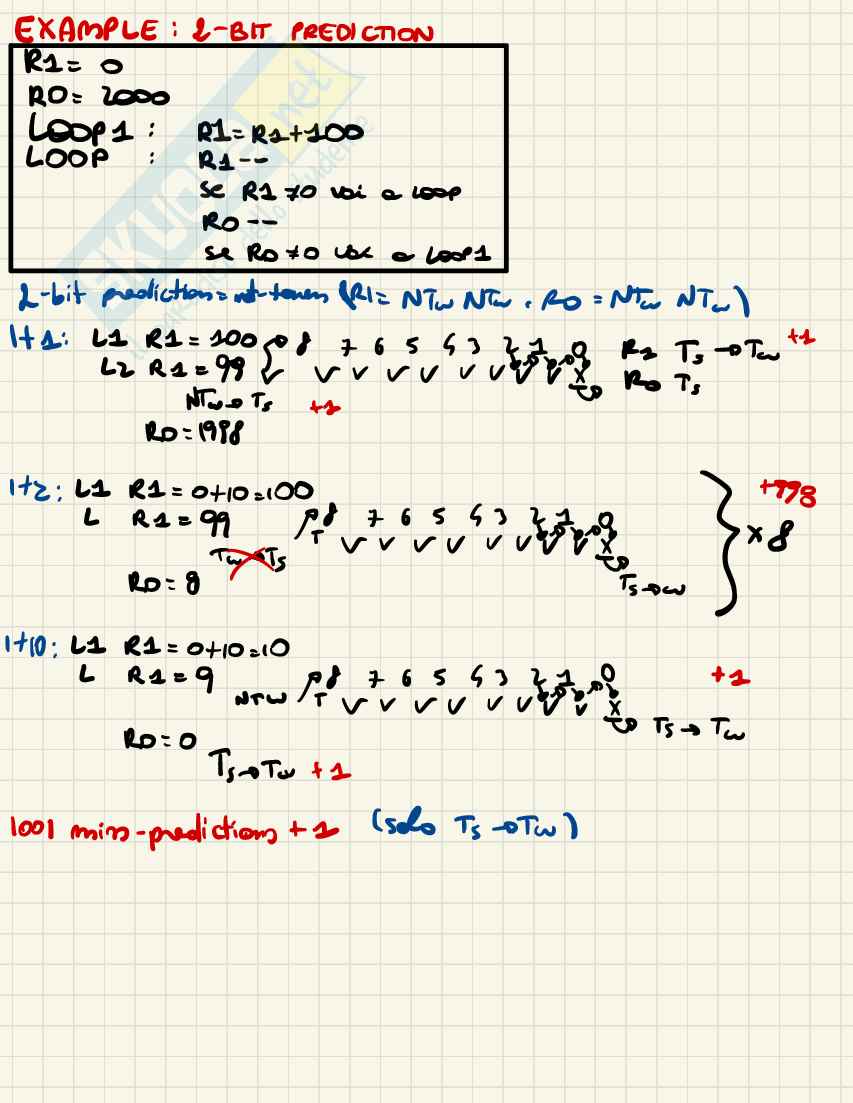 EXAMPLE: 2-BIT PREDICTION
R1 = 0
R0 = 2000
LOOP1 : R1 = R1+100
LOOP : R1 --
se R1 ≠0 vai a loop
R0 --
se R0 ≠0 vai a loop1
2-bit prediction = not-taken (R1 = NTw NTw, R0 = NTw NTw)
It1: L1 R1 = 100 8 7 6 5 4 3 2 1 0 R1 Ts → Tw +1
L2 R1 = 99 ✓ ✓ ✓ ✓ ✓ ✓ ✓ ✓ ✓ x R0 Ts
NTw → Ts +1
R0 = 1998
It2: L1 R1 = 0+10=100 +998
L R1 = 99 8 7 6 5 4 3 2 1 0 x 8
Tw → Ts T ✓ ✓ ✓ ✓ ✓ ✓ ✓ ✓ x
R0 = 8 Ts → w
It10: L1 R1 = 0+10=10
L R1 = 9 8 7 6 5 4 3 2 1 0 +1
NTW T ✓ ✓ ✓ ✓ ✓ ✓ ✓ ✓ x Ts → Tw
R0 = 0
Ts → Tw +1
1001 miss-predictions +1 (solo Ts → Tw)